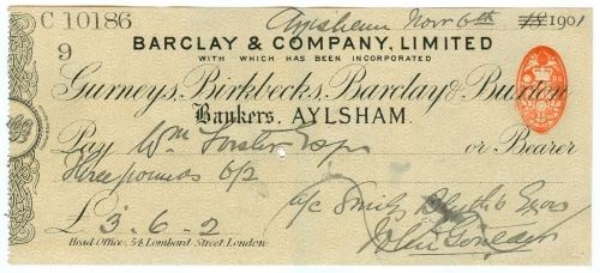 C 10186
Aylsham Novr 6th 18 1901
BARCLAY & COMPANY, LIMITED
9
WITH WHICH HAS BEEN INCORPORATED
Gurneys, Birkbecks, Barclay & Buxton
Bankers, AYLSHAM.
Pay Wm Forster Esqr or Bearer
Three pounds 6/2
a/c Smith Blyth's Exors
£ 3 - 6 - 2
John
Head Office, 54, Lombard Street London